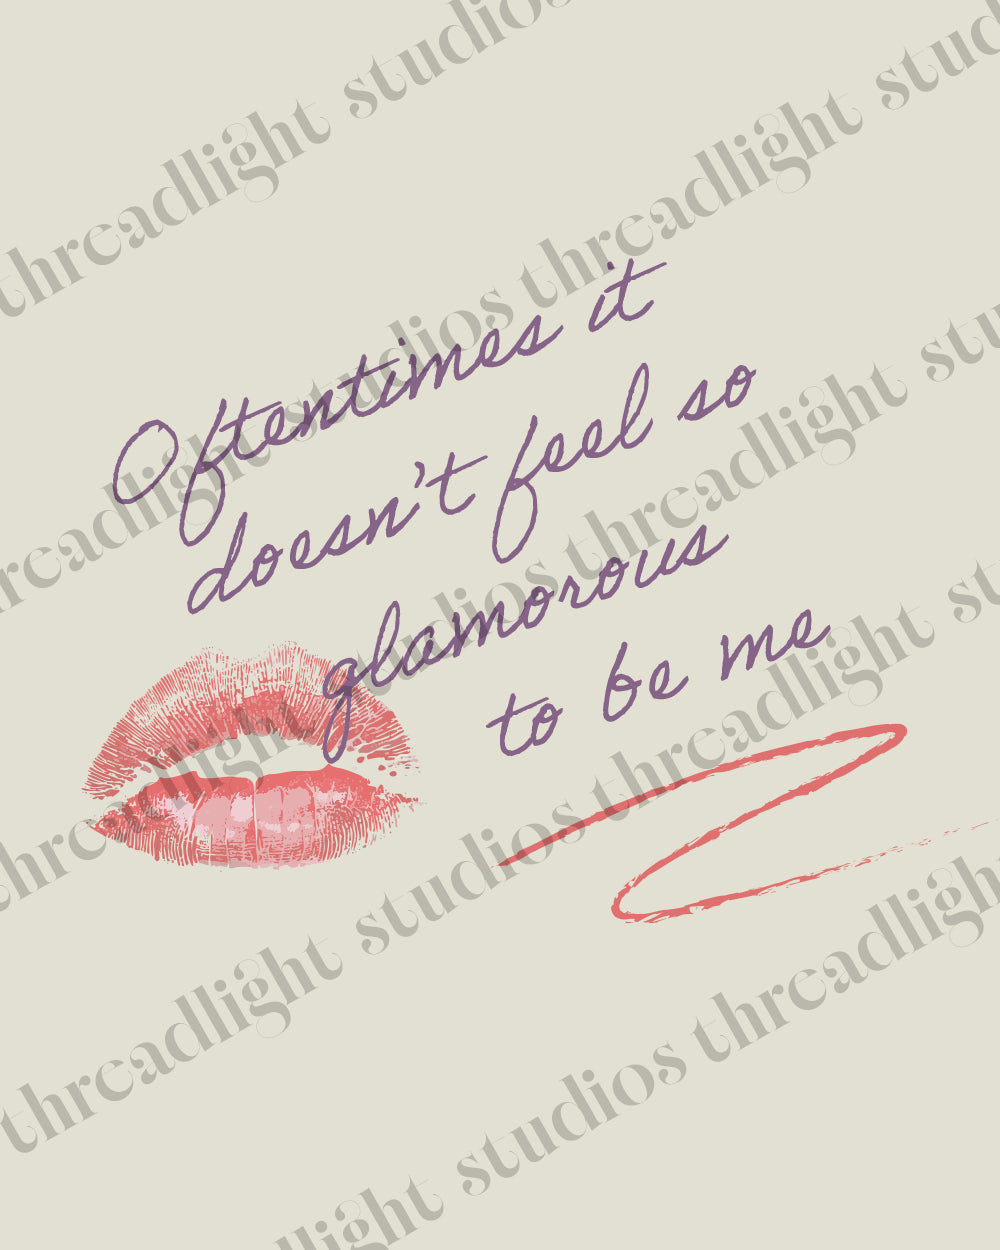 threadlight studios
threadlight studios
Oftentimes it
doesn't feel so
glamorous
to be me
threadlight studios
threadlight studios
threadlight studios
threadlight studios
threadlight studios